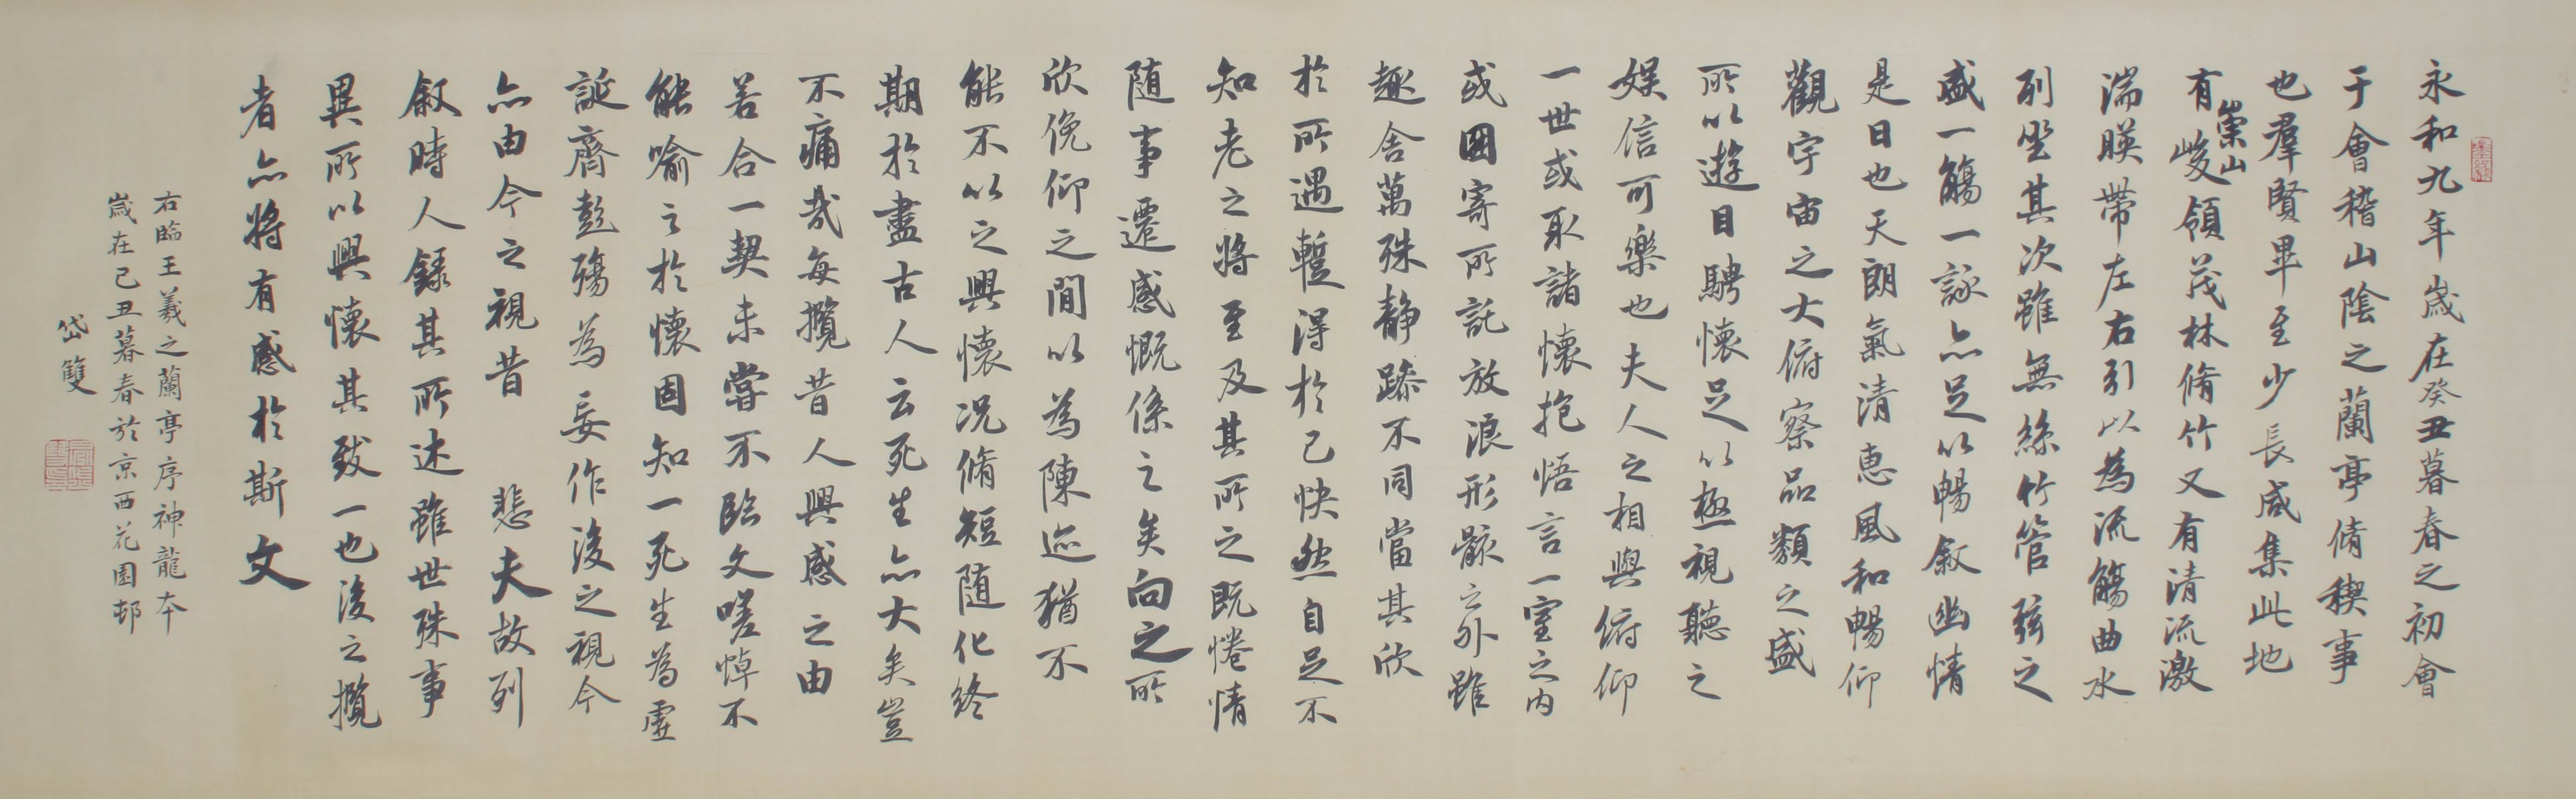 永和九年歲在癸丑暮春之初會
于會稽山陰之蘭亭脩稧事
也羣賢畢至少長咸集此地
有崇山峻領茂林脩竹又有清流激
湍暎帶左右引以為流觴曲水
列坐其次雖無絲竹管弦之
盛一觴一詠亦足以暢敘幽情
是日也天朗氣清惠風和暢仰
觀宇宙之大俯察品類之盛
所以遊目騁懷足以極視聽之
娛信可樂也夫人之相與俯仰
一世或取諸懷抱悟言一室之內
或因寄所託放浪形骸之外雖
趣舍萬殊静躁不同當其欣
於所遇暫得於己怏然自足不
知老之將至及其所之既惓情
随事遷感慨係之矣向之所
欣俛仰之閒以為陳迹猶不
能不以之興懷況脩短随化終
期於盡古人云死生亦大矣豈
不痛哉每攬昔人興感之由
若合一契未嘗不臨文嗟悼不
能喻之於懷固知一死生為虛
誕齊彭殤為妄作後之視今
亦由今之視昔 悲夫故列
敘時人錄其所述雖世殊事
異所以興懷其致一也後之攬
者亦將有感於斯文
右臨王羲之蘭亭序神龍本
歲在己丑暮春於京西花園邨
岱雙